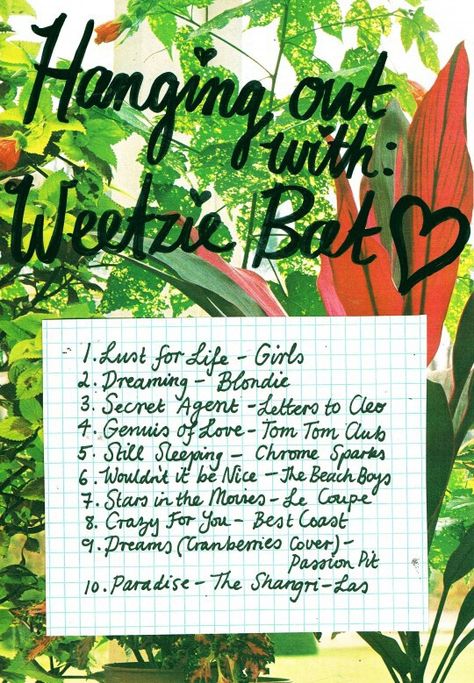 Hanging out
with:
Weetzie Bat
1. Lust for Life - Girls
2. Dreaming - Blondie
3. Secret Agent - Letters to Cleo
4. Genuis of Love - Tom Tom Club
5. Still Sleeping - Chrome Sparks
6. Wouldn't it be Nice - The Beach Boys
7. Stars in the Movies - Le Coupe
8. Crazy For You - Best Coast
9. Dreams (Cranberries Cover) -
Passion Pit
10. Paradise - The Shangri-Las